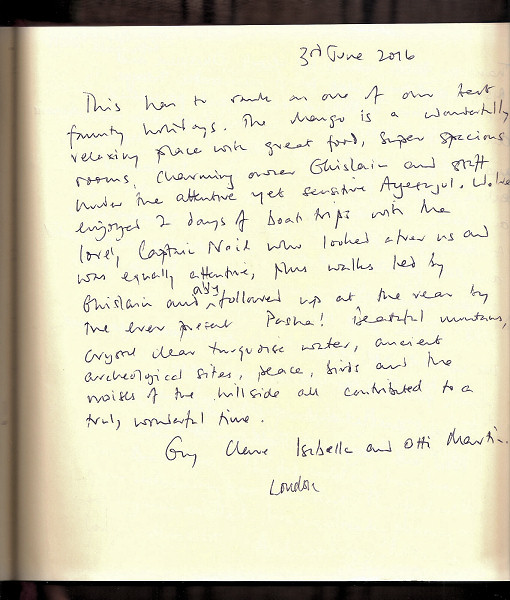 3rd June 2016
This has to rank as one of our best
family holidays. The Mango is a wonderfully
relaxing place with great food, super spacious
rooms, charming owner Ghislain and staff
under the attentive yet sensitive Aysegul. We
enjoyed 2 days of boat trips with the
lovely Captain Nail who looked after us and
was equally attentive, plus walks led by
Ghislain and ably followed up at the rear by
the ever present Pasha! Beautiful mountains,
crystal clear turquoise water, ancient
archeological sites, peace, birds and the
noises of the hillside all contributed to a
truly wonderful time.
Guy Clare Isabella and Otti Martin.
London